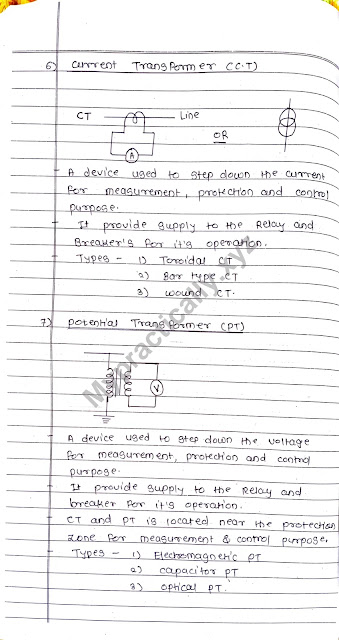 6) Current Transformer (C.T)
CT Line
OR
A
- A device used to step down the current
for measurement, protection and control
purpose.
- It provide supply to the Relay and
Breaker's for it's operation.
- Types - 1) Toroidal CT
2) Bar type CT
3) wound CT.
7) Potential Transformer (PT)
V
- A device used to step down the voltage
for measurement, protection and control
purpose.
- It provide supply to the Relay and
breaker for it's operation.
- CT and PT is located near the protection
zone for measurement & control purpose.
- Types - 1) Electromagnetic PT
2) capacitor PT
3) optical PT.